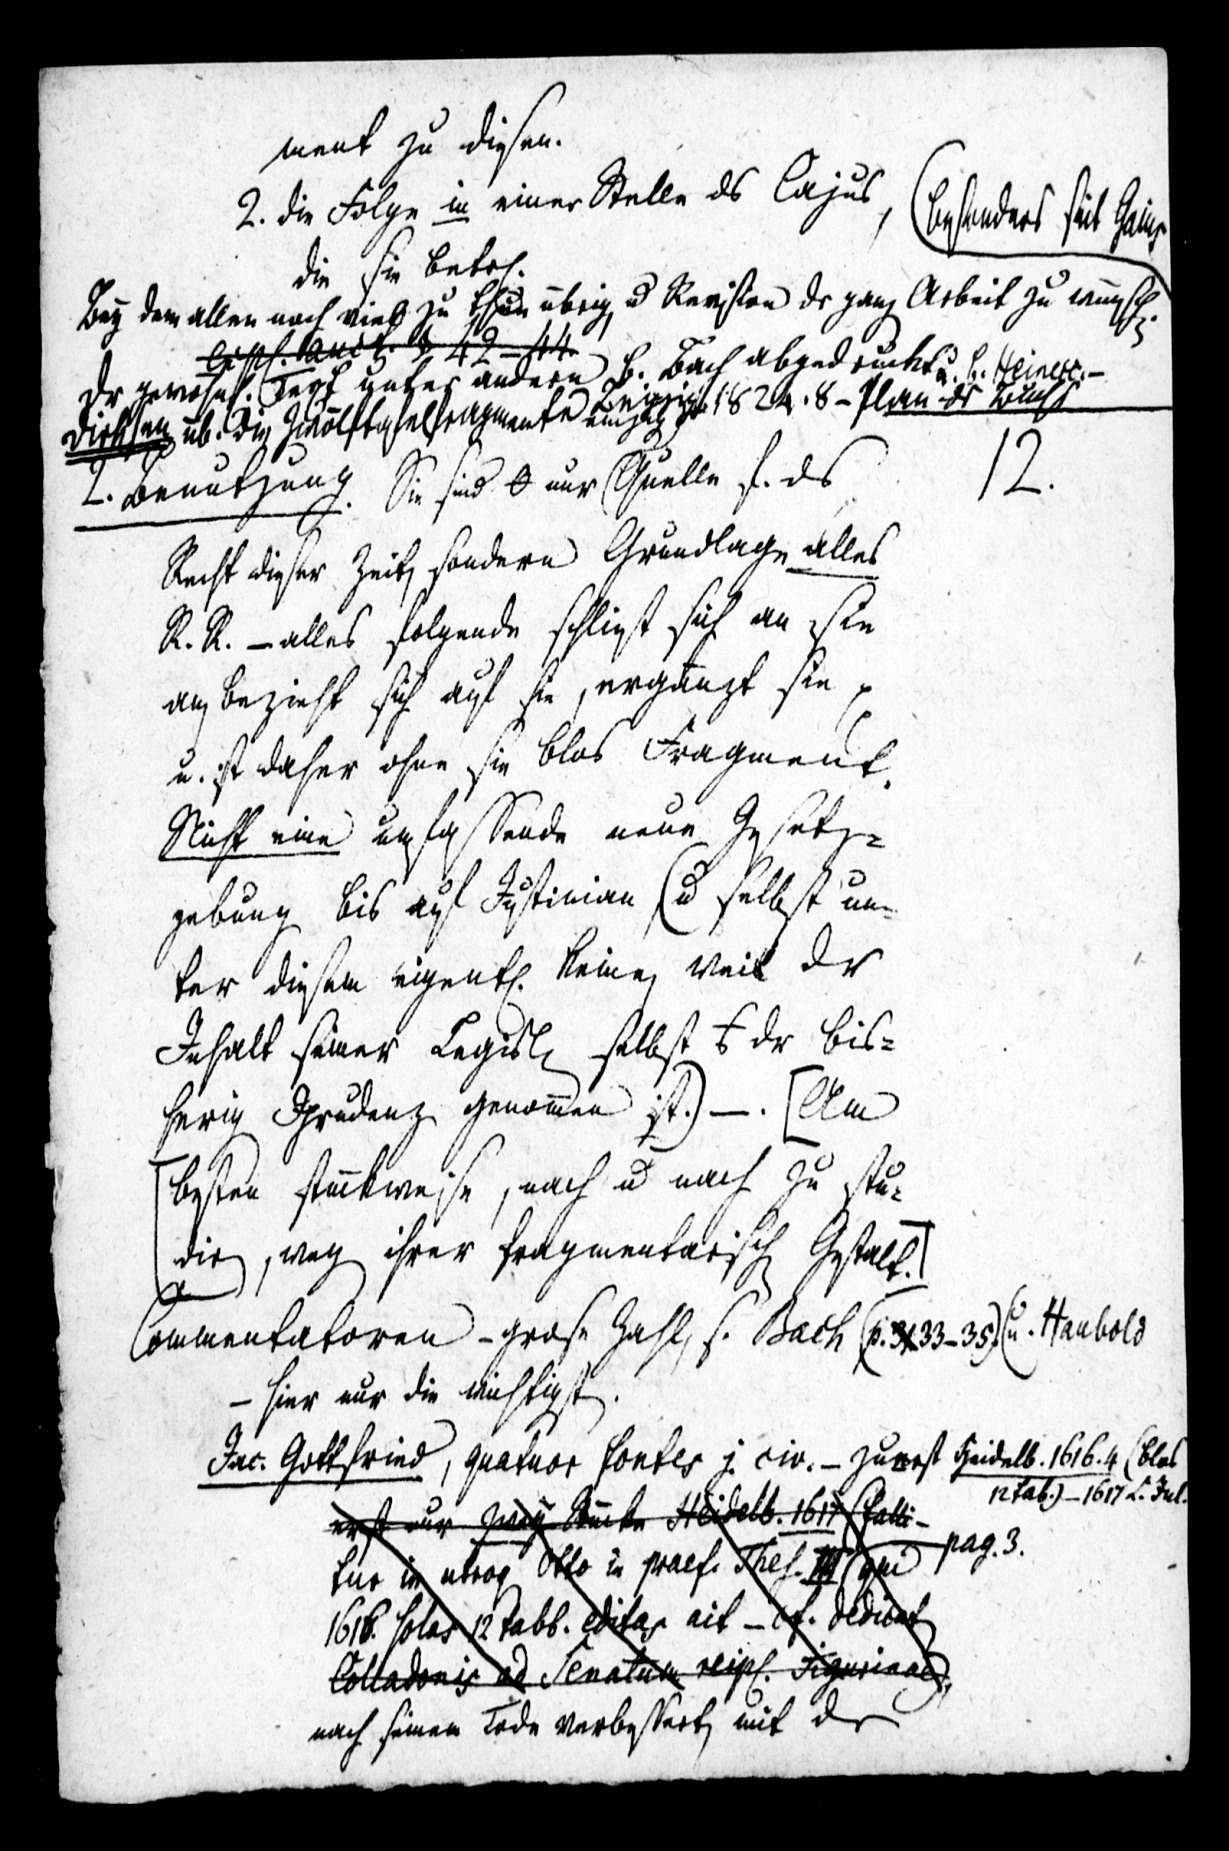 ment zu diesen.
2. die Folge in einer Stelle ds Cajus, (besonders seit Gaius
die sie betr.
Bey dem allen noch viel zu thun übrig, u Revision dr ganz Arbeit zu wünsch.
42–44.
Dr gewöhnl. Text unter andern b. Bach abgedruckt u. b. Heinecc. –
Dirksen üb. die Zwölftafelfragmente Leipzig 1824. 8 – Plan ds Buchs
2. Benutzung. Sie sind nur Quelle f. ds 12.
Recht dieser Zeit, sondern Grundlage alles
R. R. – alles folgende schliest sich an sie
an, bezieht sich auf sie, ergänzt sie
u. ist daher ohne sie blos Fragment.
Nicht eine umfassende neue Gesetz=
gebung bis auf Justinian (u selbst un=
ter diesem eigentl. keine, weil dr
Inhalt seiner Legisl. selbst dr bis=
herig Jprudenz genommen ist.) –. [Am
besten stückweise, nach u nach zu stu=
dir, weg ihrer fragmentarisch Gestalt.]
Commentatoren – grose Zahl, s. Bach (p. 33–35) (u. Haubold
– hier nur die wichtigst.
Jac. Gottfried, quatuor fontes j. civ. – zuerst Heidelb. 1616. 4 (blos
12 tab.) – 1617 L. Jul.
erst nur zwey Stücke Heidelb. 1617 (falli–
tur in utroq Otto in praef. Thes. III pag. 3. (qui
1616. solas 12 tabb. editas ait – cf. dedicat
Colladonis ad Senatum reipl. Tigurinae),
nach seinem Tode verbessert, mit dr